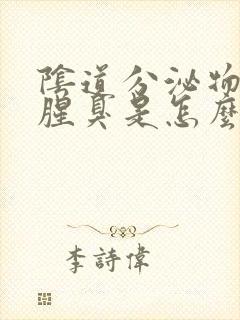 陰道分泌物
腥臭是怎麼
李詩偉